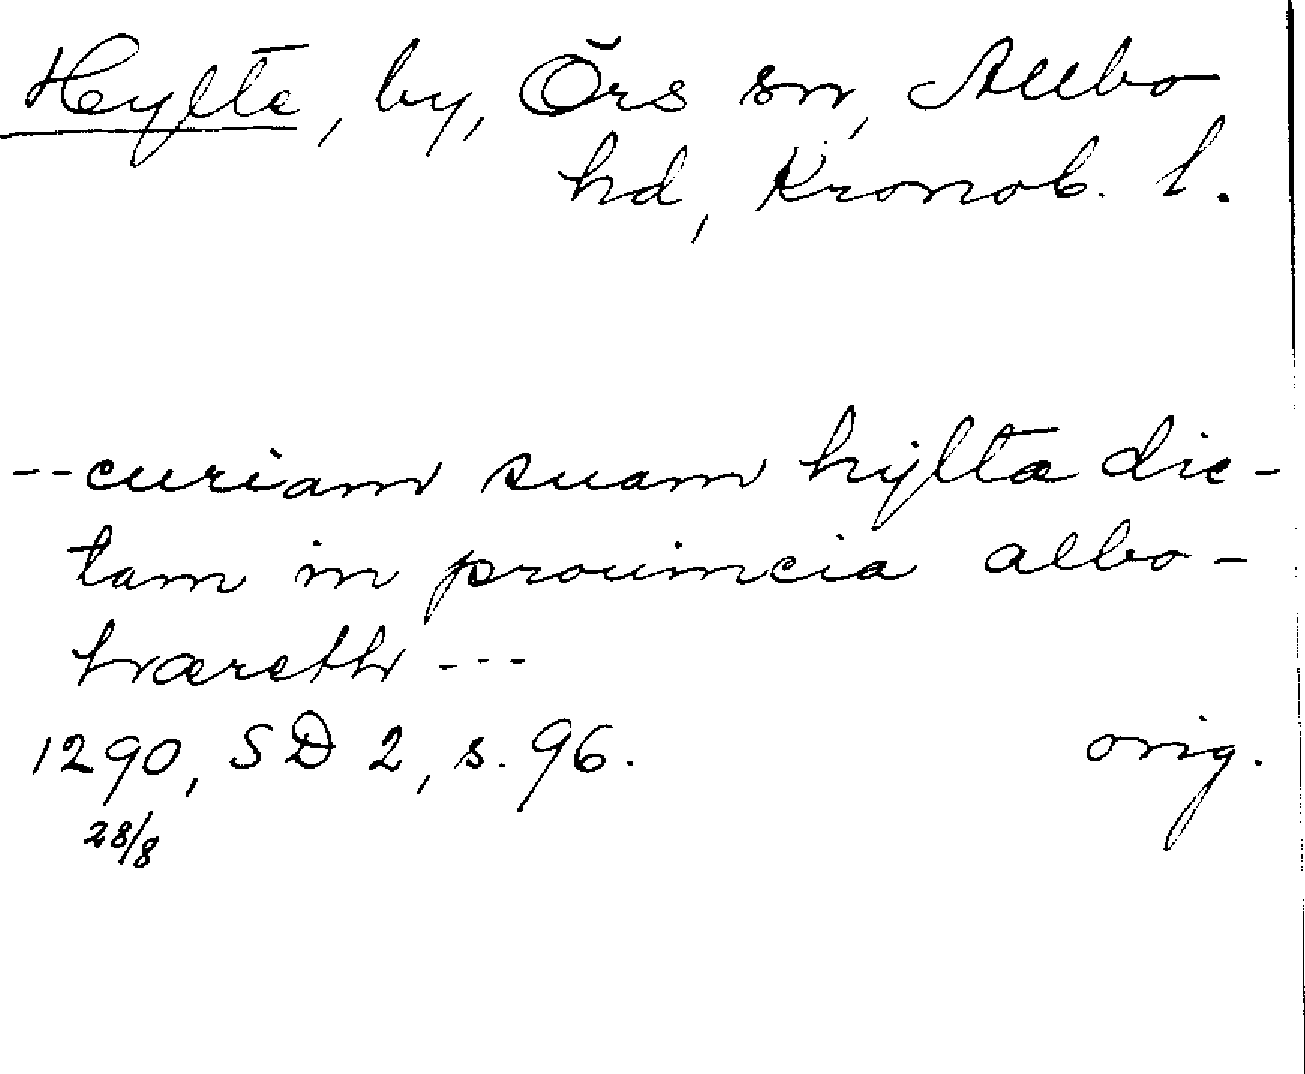 Hylte, by, Örs sn, Allbo
hd, Kronob. l.
-- curiam suam hyltæ dic-
tam in prouincia albo-
hræreth ---
1290, SD 2, s. 96. orig.
28/8